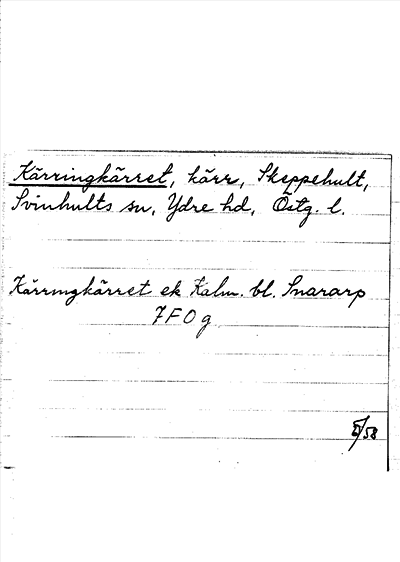 Kärringkärret, kärr, Skeppehult,
Svinhults sn, Ydre hd, Östg. l.
Kärringkärret ek Kalm. bl. Snararp
7 F O g
/58